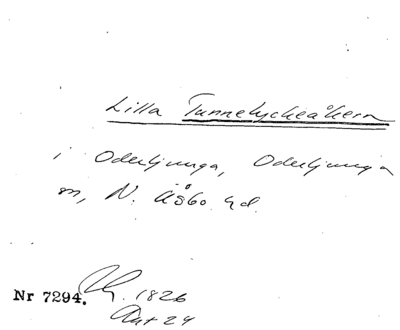 Lilla Tunnelyckeåkern
i Oderljunga, Oderljunga
sn, N. Åsbo hd.
Nr 7294. 1826
Akt 24